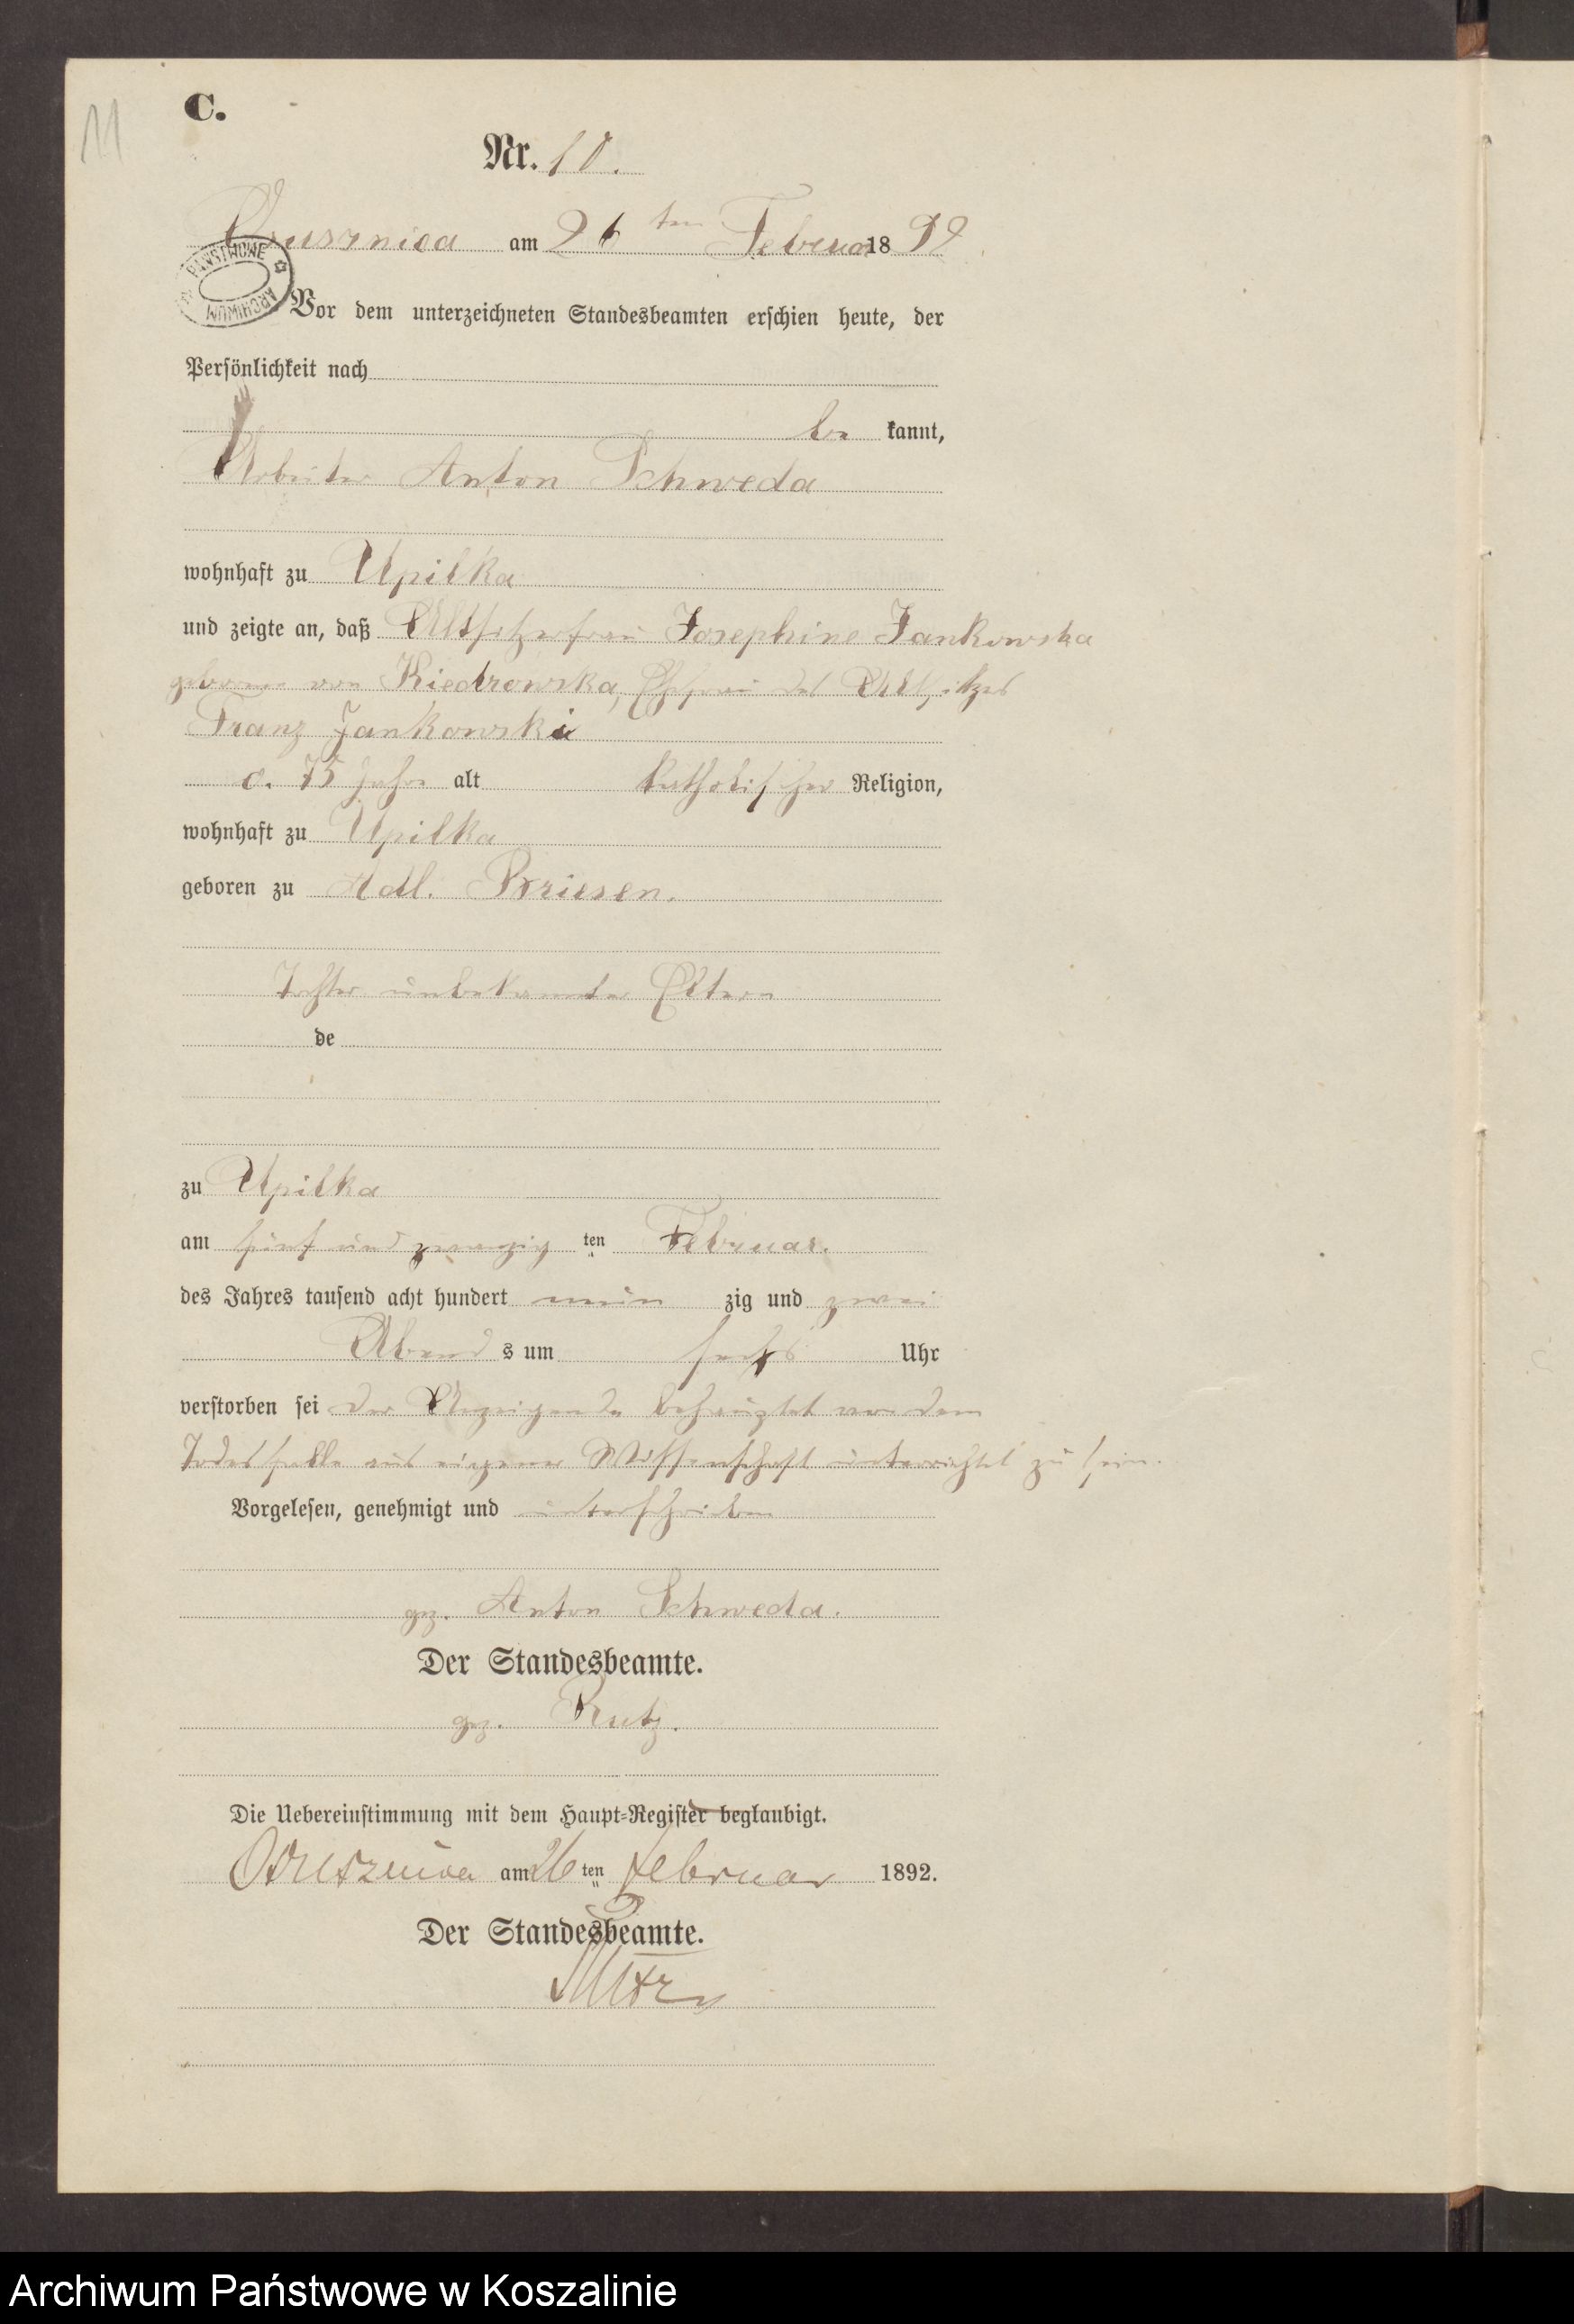 11
C.
Nr. 10.
Osusznica am 26 ten Februar 18 92
PAŃSTWOWE ARCHIWUM
Vor dem unterzeichneten Standesbeamten erschien heute, der
Persönlichkeit nach
be kannt,
Arbeiter Anton Schweda
wohnhaft zu Upilka
und zeigte an, daß Altsitzerfrau Josephine Jankowska
geborene von Kiedrowska, Ehefrau des Altsitzers
Franz Jankowski
c. 75 Jahre alt katholischer Religion,
wohnhaft zu Upilka
geboren zu Adl. Briesen.
Tochter unbekannter Eltern
de
zu Upilka
am fünf und zwanzig ten Februar.
des Jahres tausend acht hundert neun zig und zwei
Abend s um sechs Uhr
verstorben sei Der Anzeigende behauptet von dem
Todesfalle aus eigener Wissenschaft unterrichtet zu sein.
Vorgelesen, genehmigt und unterschrieben
gez. Anton Schweda.
Der Standesbeamte.
gez. Rutz.
Die Uebereinstimmung mit dem Haupt-Register beglaubigt.
Osusznica am 26 ten Februar 1892.
Der Standesbeamte.
Archiwum Państwowe w Koszalinie